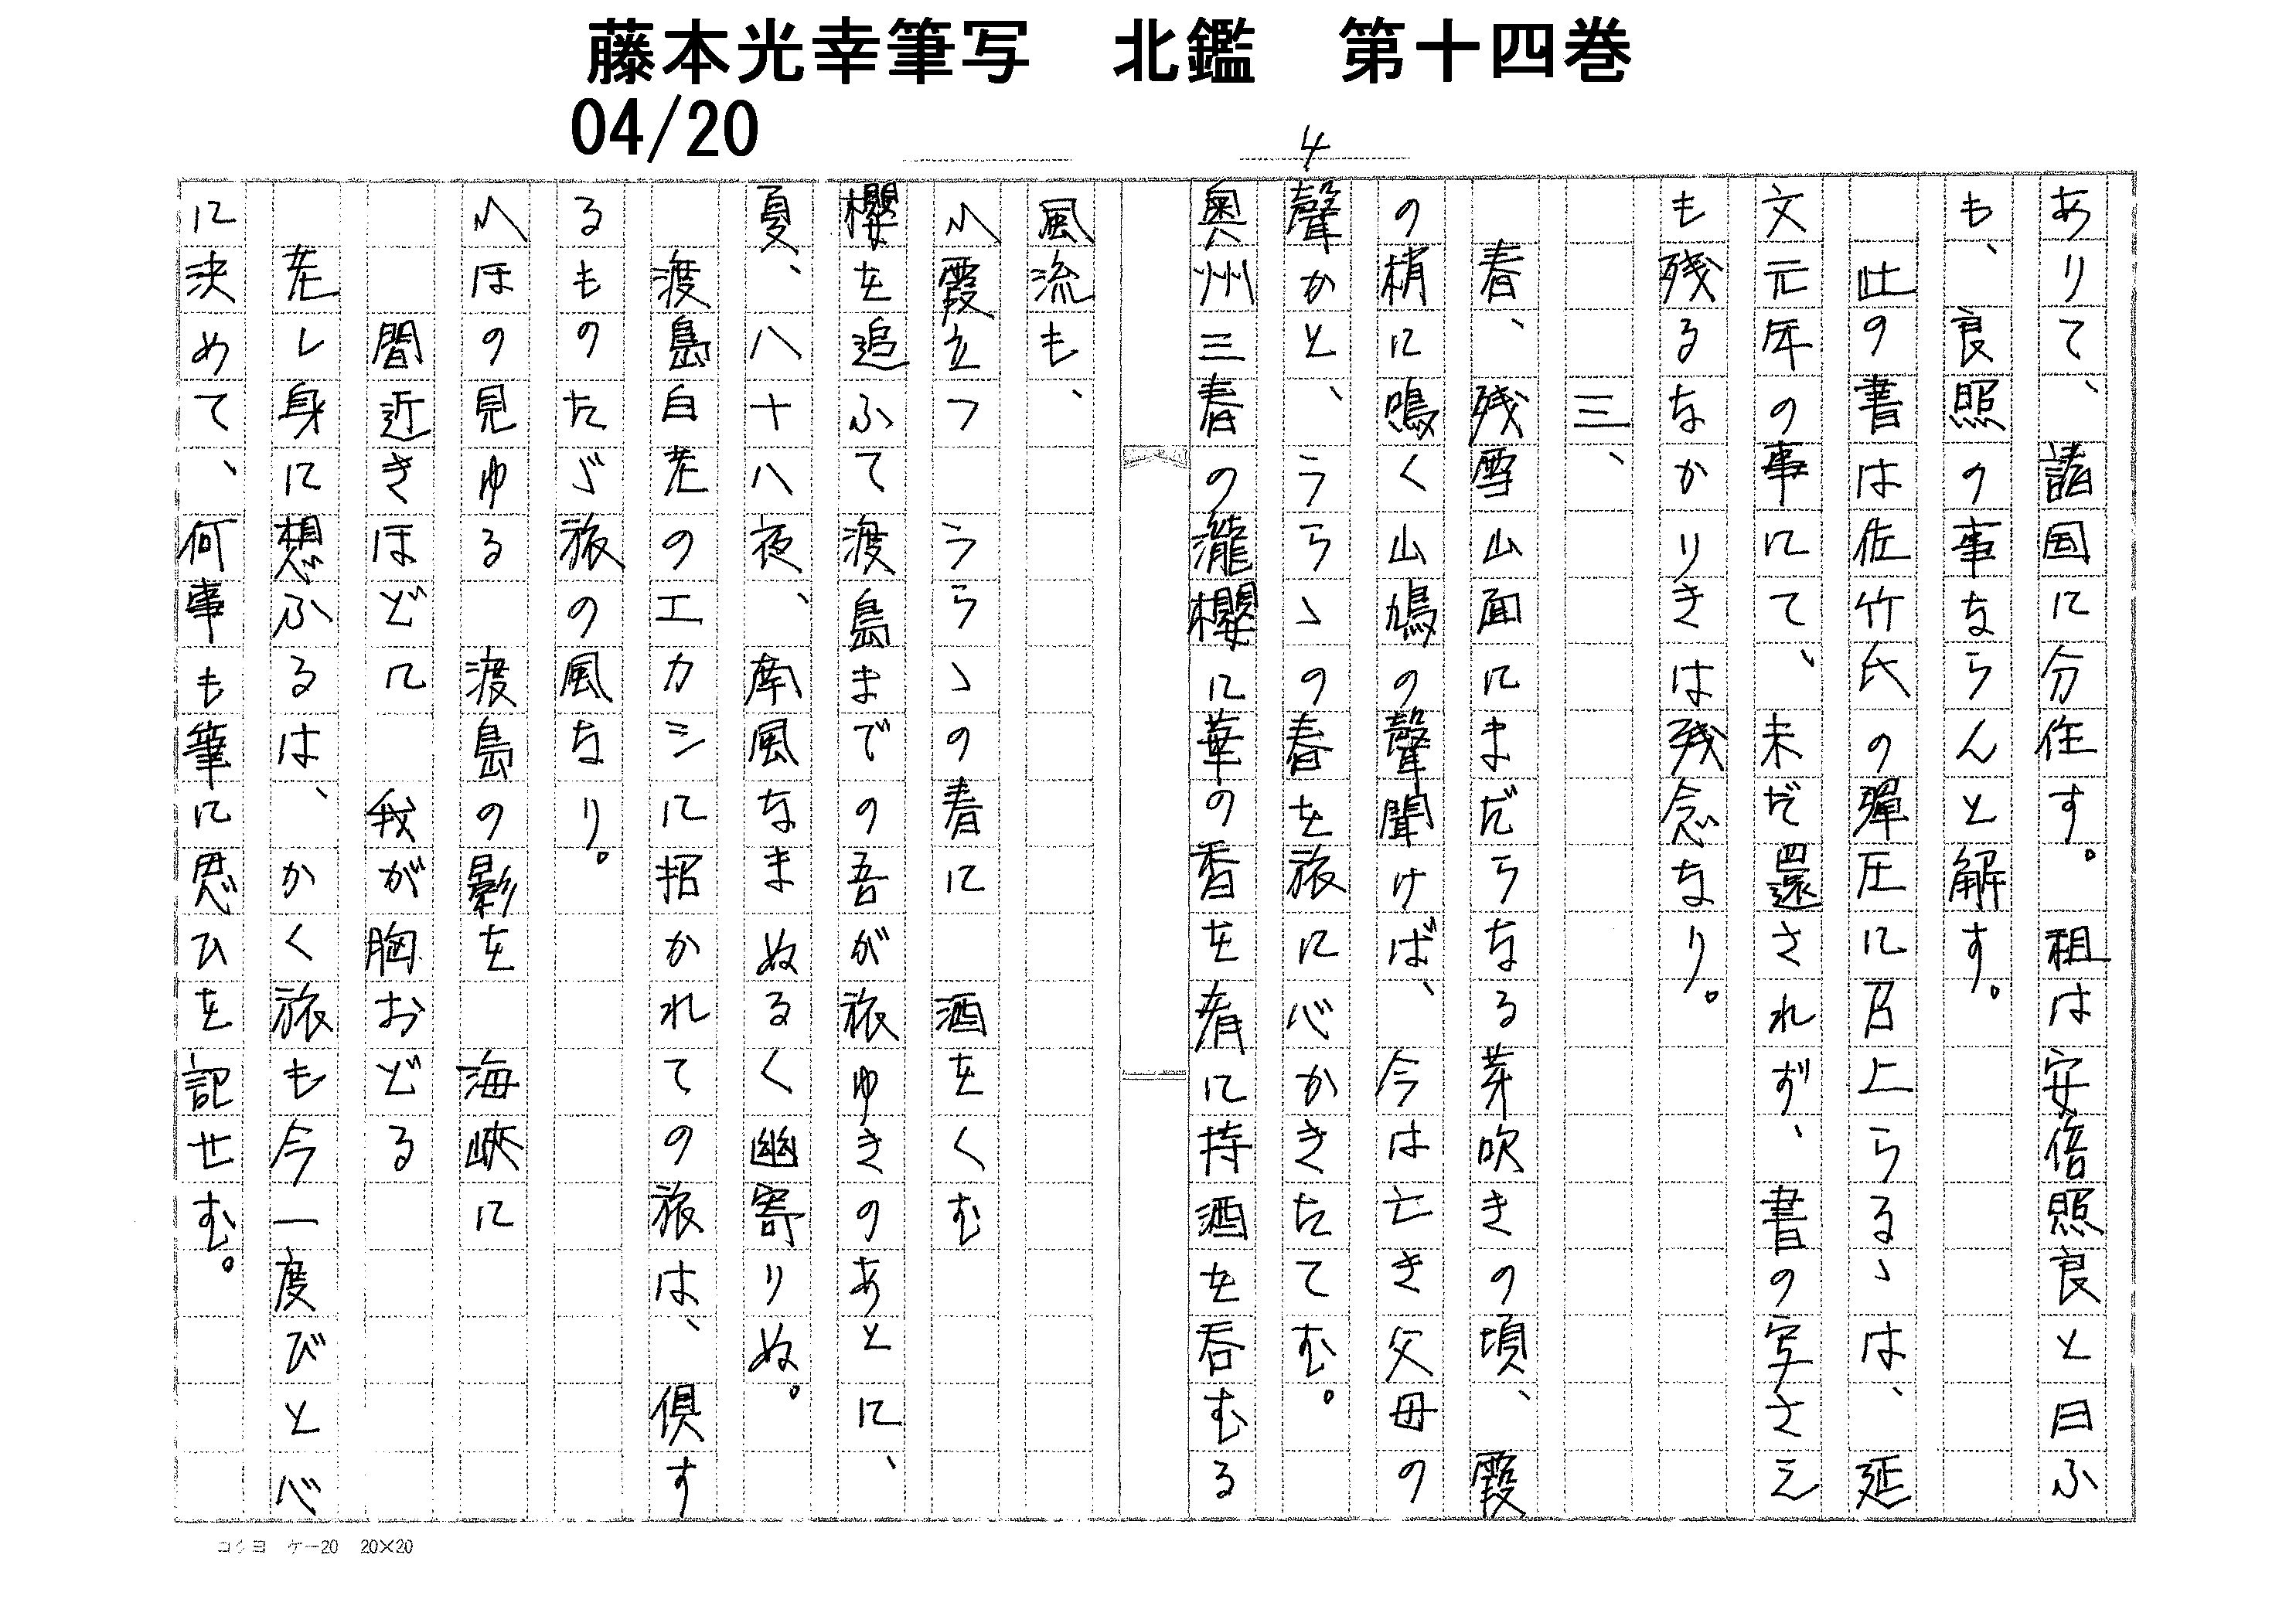 藤本光幸筆写　北鑑　第十四巻
04/20
4
ありて、諸国に分住す。祖は安倍照良と曰ふ
も、良照の事ならんと解す。
此の書は佐竹氏の彈圧に召上らるゝは、延
文元年の事にて、未だ還されず、書の写さえ
も残るなかりきは残念なり。
三、
春、残雪山面にまだらなる芽吹きの頃、霞
の梢に鳴く山鳩の聲聞けば、今は亡き父母の
聲かと、うらゝの春を旅に心かきたてむ。
奥州三春の瀧櫻に華の香を肴に持酒を呑むる
風流も、
〽霞立つ　うらゝの春に　酒をくむ
櫻を追ふて渡島までの吾が旅ゆきのあとに、
夏、八十八夜、南風なまぬるく幽寄りぬ。
渡島白老のエカシに招かれての旅は、倶す
るものたゞ旅の風なり。
〽ほの見ゆる　渡島の影を　海峽に
間近きほどに　我が胸おどる
老し身に想ふるは、かく旅も今一度びと心
に決めて、何事も筆に思ひを記せむ。
コクヨ　ケー20　20×20